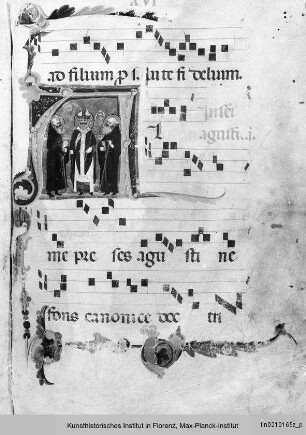 XVI
ad filium p
fi delium.
agusti.
me pre ses agu sti ne
fons canonice doc tri
Kunsthistorisches Institut in Florenz, Max-Planck-Institut
fln0210165z_p